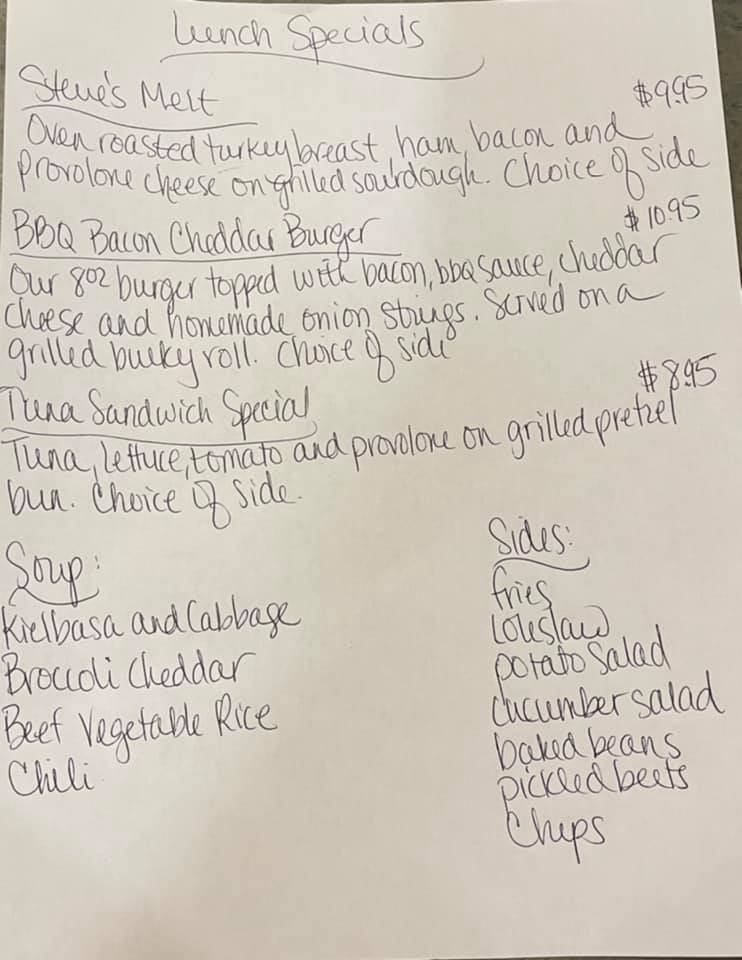 Lunch Specials
Steve's Melt
$9.95
Oven roasted turkey breast, ham, bacon and
provolone cheese on grilled sourdough. Choice of side
BBQ Bacon Cheddar Burger
$10.95
Our 8oz burger topped with bacon, bbq sauce, cheddar
cheese and homemade onion strings. Served on a
grilled bulky roll. Choice of side
Tuna Sandwich Special
$8.95
Tuna, lettuce, tomato and provolone on grilled pretzel
bun. Choice of side.
Soup:
Kielbasa and Cabbage
Broccoli Cheddar
Beef Vegetable Rice
Chili
Sides:
fries
Coleslaw
potato salad
cucumber salad
baked beans
pickled beets
Chips